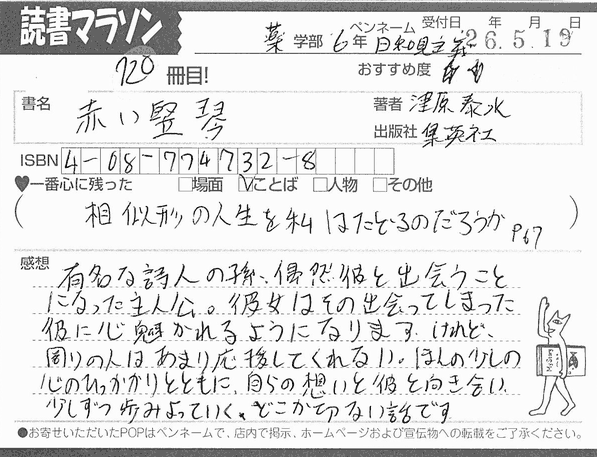 読書マラソン
薬 学部 6年 ペンネーム 日和見主義 受付日 年 月 日 26.5.19
720 冊目! おすすめ度
書名 赤い竪琴 著者 津原泰水
出版社 集英社
ISBN 4-08-774732-8
♥一番心に残った □場面 ☑ことば □人物 □その他
(相似形の人生を私はたどるのだろうか P67)
感想
有名な詩人の孫、偶然彼と出会うこと
になった主人公。彼女はその出会ってしまった
彼に心魅かれるようになります。けれど、
周りの人はあまり応援してくれない。ほんの少しの
心のひっかかりとともに、自らの想いと彼と向き合い、
少しずつ歩みよっていく、どこか切ない話です
●お寄せいただいたPOPはペンネームで、店内で掲示、ホームページおよび宣伝物への転載をご了承ください。